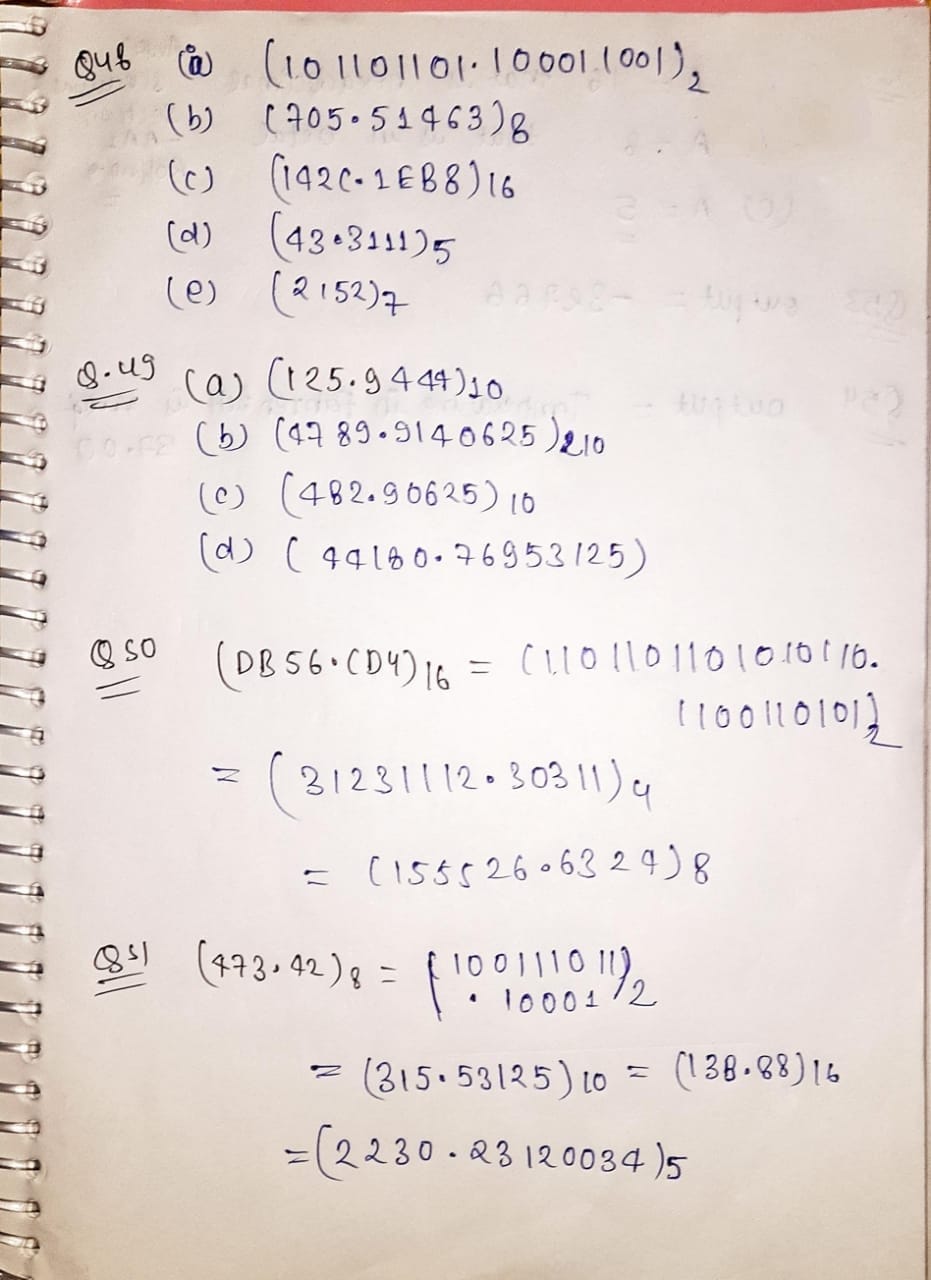 Q48 (a) (101101101.100011001)2
(b) (705.51463)8
(c) (142C.1EB8)16
(d) (43.3111)5
(e) (2152)7
Q.49 (a) (125.9444)10
(b) (4789.9140625)10
(c) (482.90625)10
(d) (44180.76953125)
Q50 (DB56.CD4)16 = (1101101101010110.
1100110101)2
= (31231112.30311)4
= (155526.6324)8
Q51 (473.42)8 = (100111011
.10001)2
= (315.53125)10 = (13B.88)16
= (2230.23120034)5